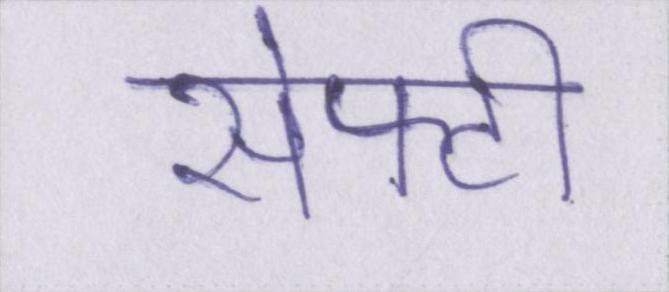 सेफ्टी